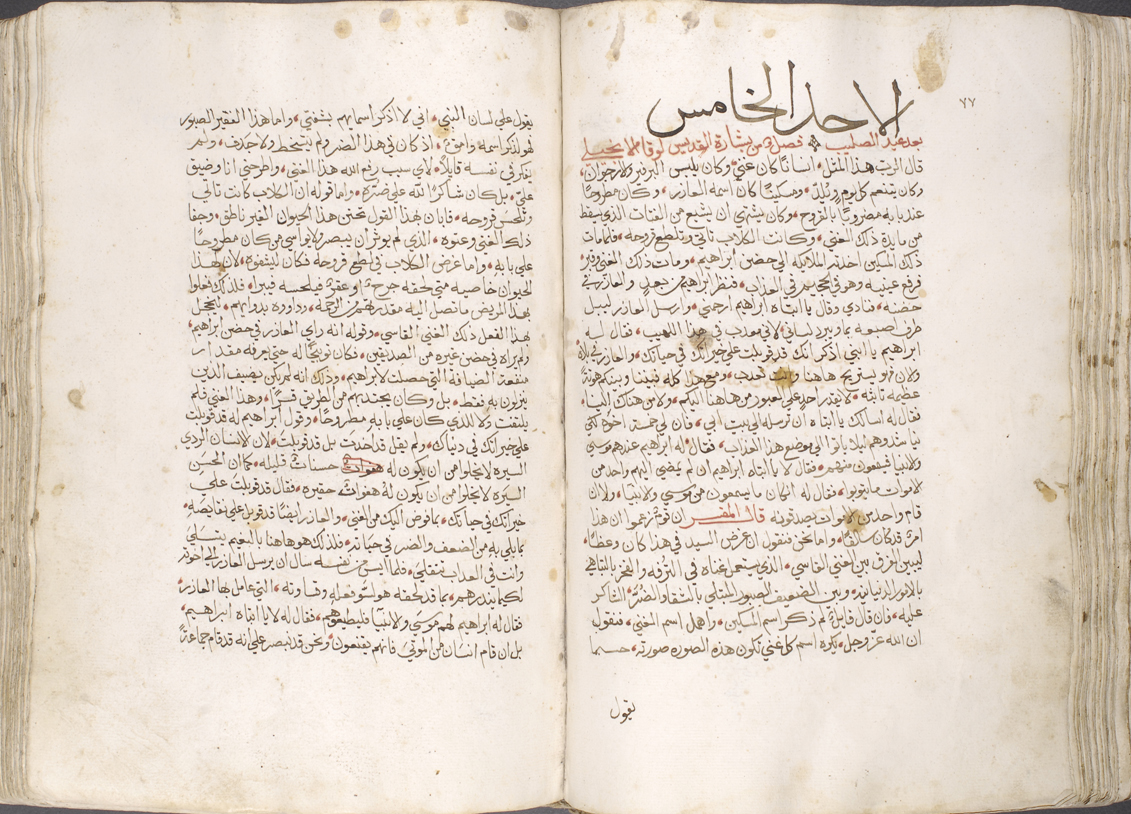 ٧٧
الاحد الخامس
بعد عيد الصليب فصل من بشارة القديس لوقا الانجيلي
قال الرب هذا المثل، انسانًا كان غني وكان يلبس البرفير والارجوان،
وكان يتنعم كل يوم ويلذ، ومسكينًا كان اسمه العازر، وكان مطروحًا
عند بابه مضروبًا بالقروح، وكان يشتهي ان يشبع من الفتات الذي يسقط
من مايدة ذلك الغني، وكانت الكلاب تاتي وتلطع قروحه، فلما مات
ذلك المسكين اخذته الملايكه الى حضن ابراهيم، ومات ذلك الغني وقبر
فرفع عينيه وهو في الجحيم في العذاب، فنظر ابراهيم من بعد والعازر في
حضنه، فنادى وقال يا ابتاه ابراهيم ارحمني، وارسل العازر ليبل
طرف اصبعه بما ويبرد لساني لاني معذب في هذا اللهيب، فقال له
ابراهيم يا ابني اذكر انك قد قوبلت على خيراتك في حياتك، والعازر في بلاه
والان فهو يستريح هاهنا وانت تعذب، ومع هذا كله فبيننا وبينكم هوتة
عظيمه ثابته، لا يقدر احد على العبور من هاهنا اليكم، ولا من هناك الينا،
فقال له اسالك يا ابتاه ان ترسله الى بيت ابي، فان لي خمسة اخوة لكي
يناشدهم ليلا ياتوا الى موضع هذا العذاب، فقال له ابراهيم عندهم موسى
والانبيا فيسمعون منهم، فقال لا يا ابتاه ابراهيم ان لم يمضي اليهم واحد من
الاموات ما يتوبوا، فقال له ان كان ما يسمعون من موسى والانبيا، ولا ان
قام واحد من الاموات يصدقونه قال المفسر ان قوم زعموا ان هذا
امرً قد كان سالفًا، واما نحن فنقول ان غرض السيد في هذا كان وعظًا،
ليبين الفرق بين الغني القاسي، الذي يستعمل غناه في الترفه والفخر بالتباهي
بالامور الدنيانيه، وبين الضعيف الصبور المبتلي بالشقا والضر، الشاكر
عليه، فان قال قايلا لم ذكر اسم المسكين، واهمل اسم الغني، فنقول
ان الله عز وجل، يكره اسم كل غني تكون هذه الصوره صورته، حسبما
يقول
يقول على لسان النبي، اني لا اذكر اسماهم بشفتي، واما هذا الفقير الصبور
فهو اذكر اسمه وامدح، اذ كان في هذا الضر ولم يتسخط ولا جدف، ولم
يفكر في نفسه قايلا، لاي سبب رفع الله هذا الغني، واطرحني انا وضيق
علي، بل كان شاكرًا لله على ضره، واما قوله ان الكلاب كانت تاتي
وتلحس قروحه، فابان بهذا القول تحنن هذا الحيوان الغير ناطق، وجفا
ذلك الغني وعتوه، الذي لم يوثر ان يبصر ولا يواسي من كان مطروحًا
على بابه، واما غرض الكلاب في لطع قروحه فكان لينقوه، لان لهذا
الحيوان خاصيه متى لحقه جرح او عقر فيلحسه فيبرا، فلذلك فعلوا
بهذا المريض ما تصل اليه مقدرتهم من الرحمة، وداووه بدوايهم، ليخجل
بهذا الفعل ذلك الغني القاسي، وقوله انه راى العازر في حضن ابراهيم،
ولم يراه في حضن غيره من الصديقين، فكان توبيخًا له حتى يعرفه مقدار
منفعة الضيافه التي حصلت لابراهيم، وذلك انه لم يكن يضيف الذين
ينزلون به فقط، بل وكان يجتذبهم من الطريق قسرًا، وهذا الغني فلم
يلتفت ولا للذي كان على بابه مطروحًا، وقول ابراهيم له قد قوبلت
على خيراتك في دنياك، ولم يقل قد اخذت بل قد قوبلت، لان الانسان الردي
السيره لا يخلوا من ان يكون له هفوات حسنات قليله، كما ان الحسن
السيره لا يخلوا من ان يكون له هفوات حقيره، فقال قد قوبلت على
خيراتك في حياتك، بما فوض اليك من الغنى، والعازر ايضًا قد قوبل على نقايصه،
بما بلي به من الضعف والضر في حياته، فلذلك هو هاهنا بالنعيم يتسلى
وانت في العذاب تتقلى، فلما ايس من نفسه سال ان يرسل العازر الى اخوته
لكيما ينذرهم، بما قد لحقه هو لسو فعله وتهاونه، التي عامل بها العازر،
فقال له ابراهيم لهم موسى والانبيا فليطيعوهم، فقال له لا يا ابتاه ابراهيم،
بل ان قام انسان من الموتى، فانهم يقتنعون، ونحن قد نبصر على انه قد قام جماعة